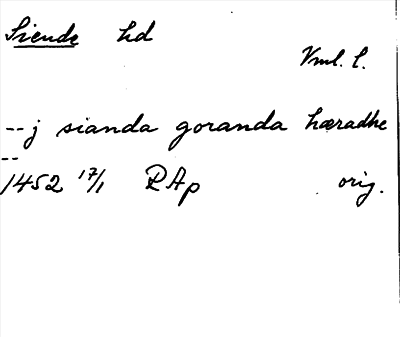 Siende hd
Vml. l.
-- j sianda goranda hæradhe
--
1452 17/1 RAp orig.